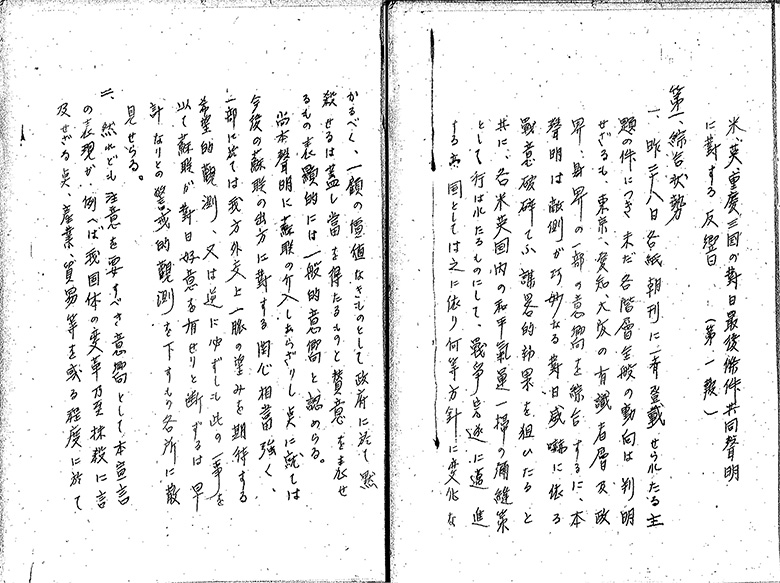 米、英、重慶三国の對日最後條件共同聲明
に對する反響 （第一報）
第一、綜合状勢
一、昨二十八日各紙朝刊に一斉登載せられたる主
題の件につき未だ各階層全般の動向は判明
せざるも、東京、愛知、大阪の有識者層及政
界、財界の一部の意嚮を綜合するに、本
聲明は敵側が巧妙なる對日威嚇に依る
戦意破砕てふ謀略的効果を狙ひたると
共に、各米英国内の和平氣運一掃の彌縫策
として行はれたるものにして、戦争完遂に邁進
する 国としては之に依り何等方針に変化な
かるべく、一顧の價値なきものとして政府に於て黙
殺せるは蓋し當を得たるものと賛意を表せ
るもの表顕的には一般的意嚮と認めらる。
尚本聲明に蘇聯の介入しあらざりし点に就ては
今後の蘇聯の出方に對する関心相當強く、
一部に於ては我方外交上一脈の望みを期待する
希望的観測、又は逆に必ずしも此の一事を
以て蘇聯が對日好意を有せりと断ずるは早
計なりとの警戒的観測を下すもの各所に散
見せらる。
二、然れども注意を要すべき意嚮として本宣言
の表現が、例へば我国体の変革乃至抹殺に言
及せざる点、産業、貿易等を或る程度に於て